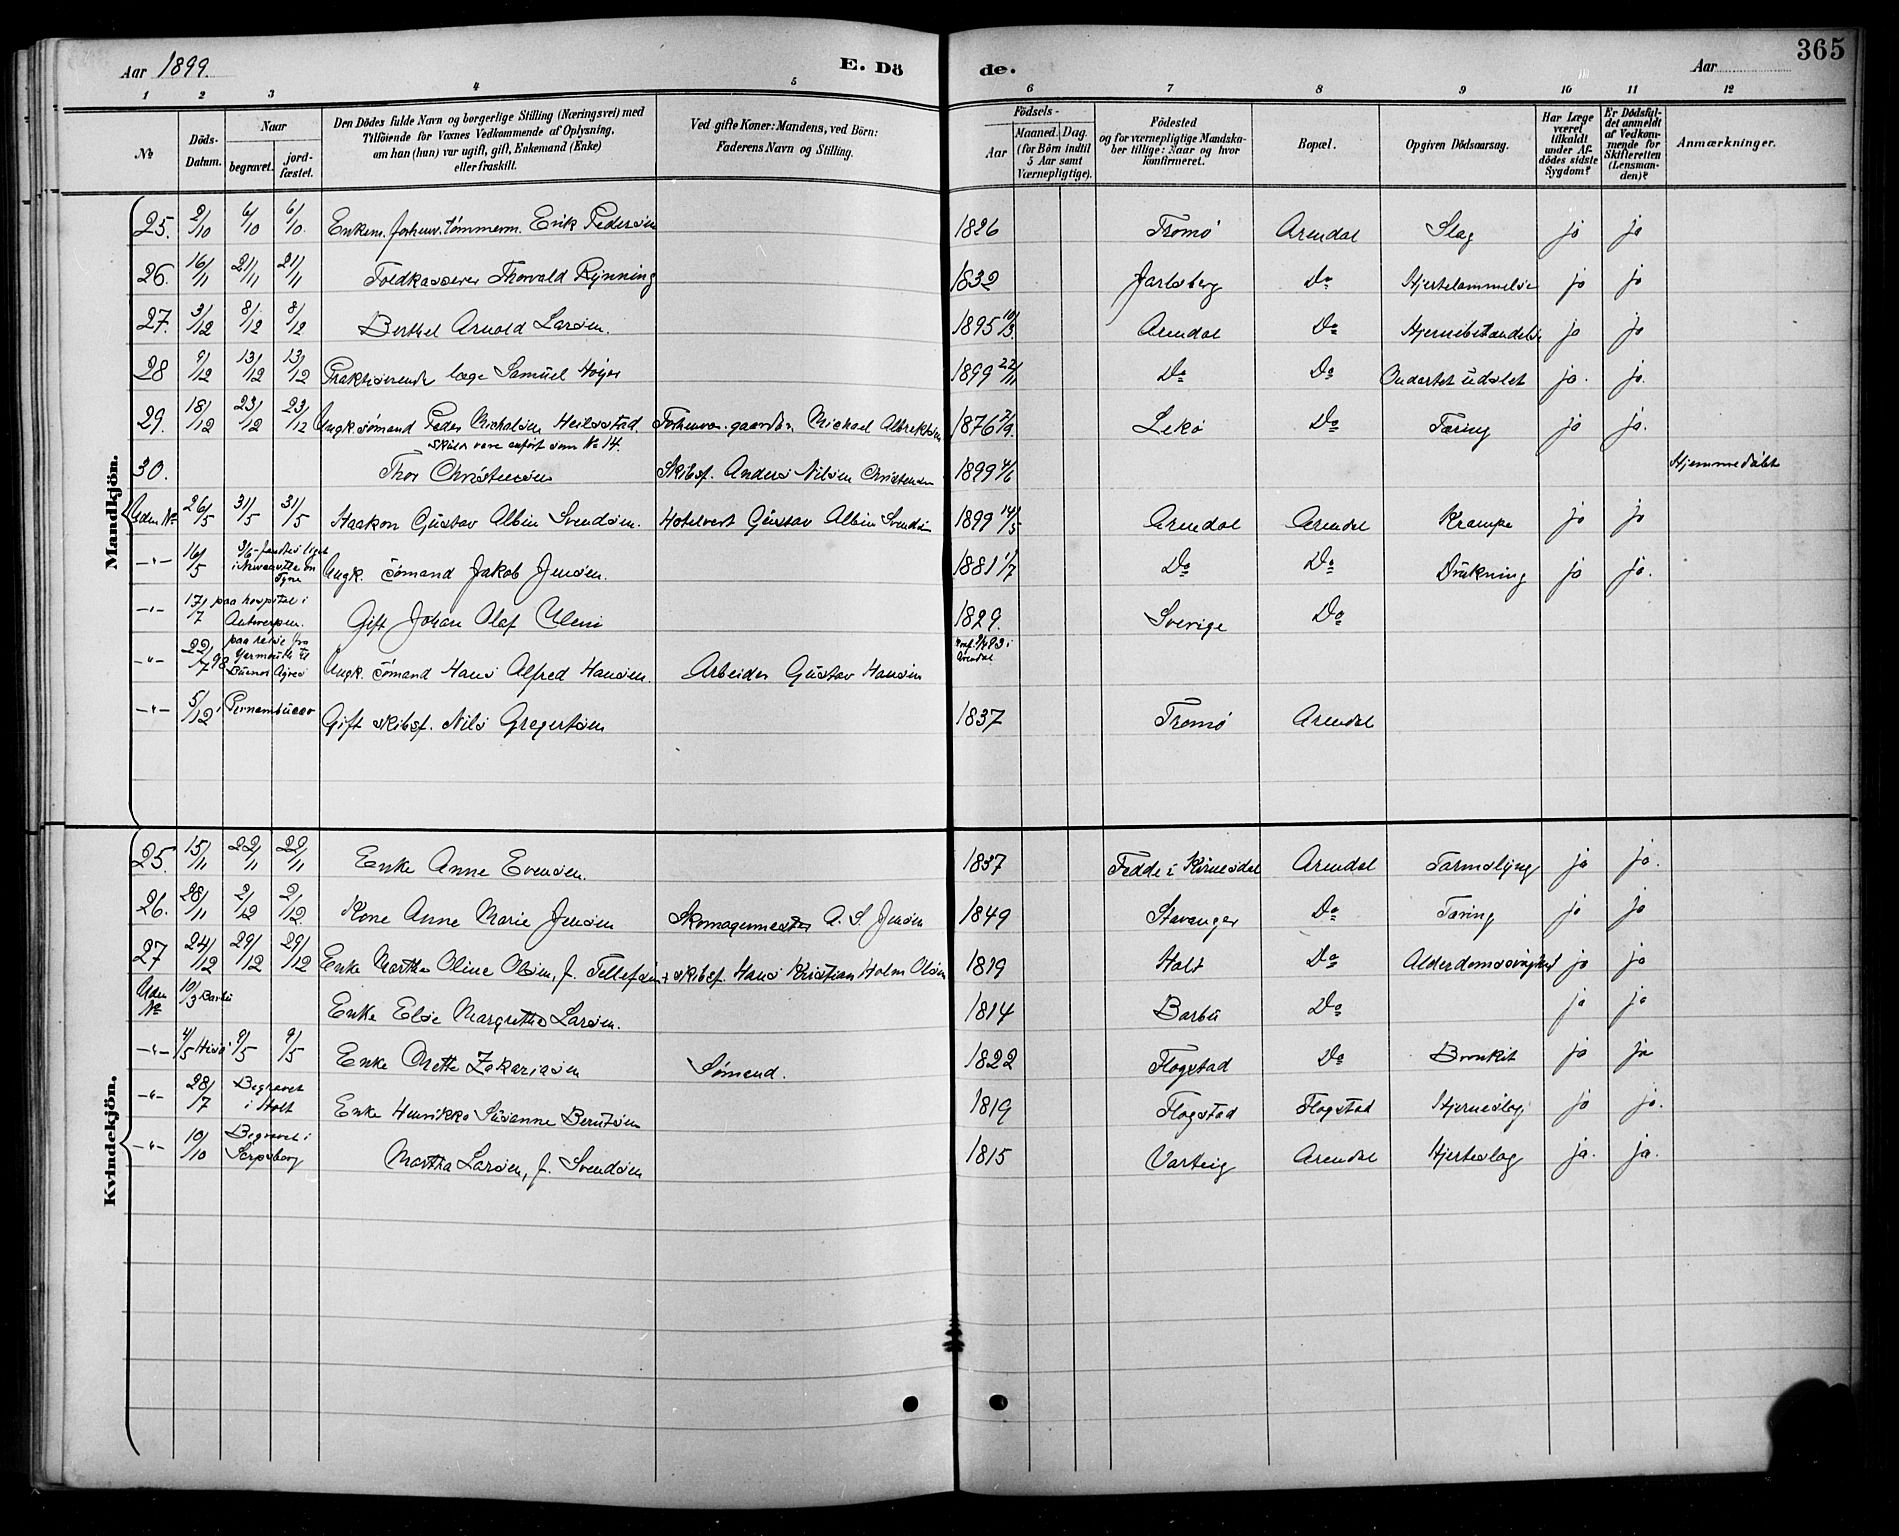 Aar 1899. E. Dö de. Aar 365
1 2 3 4 5 6 7 8 9 10 11 12
No.
Döds-Datum.
Naar begravet. jordfæstet.
Den Dödes fulde Navn og borgerlige Stilling (Næringsvei) med
Tilföiende for Voxnes Vedkommende af Oplysning,
om han (hun) var ugift, gift, Enkemand (Enke)
eller fraskilt.
Ved gifte Koner: Mandens, ved Börn:
Faderens Navn og Stilling.
Födsels-
Aar Maaned. Dag.
(for Börn indtil
5 Aar samt
Værnepligtige).
Födested
og for værnepligtige Mandskaber tillige: Naar og hvor
konfirmeret.
Bopæl.
Opgiven Dödsaarsag.
Har Læge
været
tilkaldt
under Afdödes sidste
Sygdom?
Er Dödsfuldet anmeldt
af Vedkommende for
Skifteretten
(Lensmanden)?
Anmærkninger.
Mandkjön.
25. 2/10 6/10 6/10. Enkem. forhenv. tømmerm. Erik Pedersen 1826 Tromø Arendal Slag ja ja
26. 16/11 21/11 21/11 Toldkasserer Thorvald Rynning 1832 Jarlsberg Do Hjertelammelse ja ja
27. 3/12 8/12 8/12 Berthel Arnold Larsen. 1895 10/3. Arendal Do Hjernebetændelse ja ja
28 9/12 13/12 13/12 Praktiserende læge Samuel Høyer 1899 22/11 Do Do Ondartet udslet ja. ja.
29. 18/12 23/12 23/12 Ungk. sømand Peder Michalsen Heilsstad. Forhenv. gaardbr. Michael Albrektsen 1876 7/9. Lekø Do Tæring ja ja.
Skulde være anført som No 14.
30. Thor Christensen Skibsf. Anders Nilsen Christensen 1899 4/6 Hjemmedøbt
Uden No 26/5 31/5 31/5 Haakon Gustav Albin Svendsen. Hotelvert Gustav Albin Svendsen 1899 14/5 Arendal Arendal Krampe ja ja
-"- 16/5 3/6 - i Newcastle on Tyne Ungk. sømand Jakob Jensen. 1881 1/7 Do Do Drukning ja ja.
-"- 17/7 paa hospital i Antwerpen. Gift Johan Olaf 1829. Sverige Do
-"- 22/7 98 paa reise fra Yarmouth til Buenos Ayres Ungk. sømand Hans Alfred Hansen. Arbeider Gustav Hansen i Arendal
-"- 5/12 i Pernambuco Gift skibsf. Nils Gregertsen 1837 Tromø Arendal
Kvindekjön.
25. 15/11 22/11 22/11 Enke Anne Evensen. 1837 Fedde i Arendal Tarmslyng ja ja.
26. 28/11 2/12 2/12 Kone Anne Marie Jensen Skomagermester A. S. Jensen 1849 Stavanger Do Tæring ja ja
27 24/12 29/12 29/12 Enke Marthe Oline Olsen, f. Tellefsen skibsf. Hans Kristian Holm Olsen 1819 Holt Do Alderdomssvaghed ja ja
Uden No 10/3 Barbu Enke Else Margrethe Larsen. 1814 Barbu Do ja ja
-"- 4/5 Hisø 9/5 9/5 Enke Mette Zakariasen Sømand. 1822 Flogstad Do Bronkit ja ja
-"- 28/7 Begravet i Holt Enke Henrikke Susanne Berntsen 1819 Flogstad Flogstad Hjerneslag ja ja.
-"- 10/10 Begravet i Sarpsborg Martha Larsen, f. Svendsen 1815 Varteig Arendal Hjerteslag ja. ja.